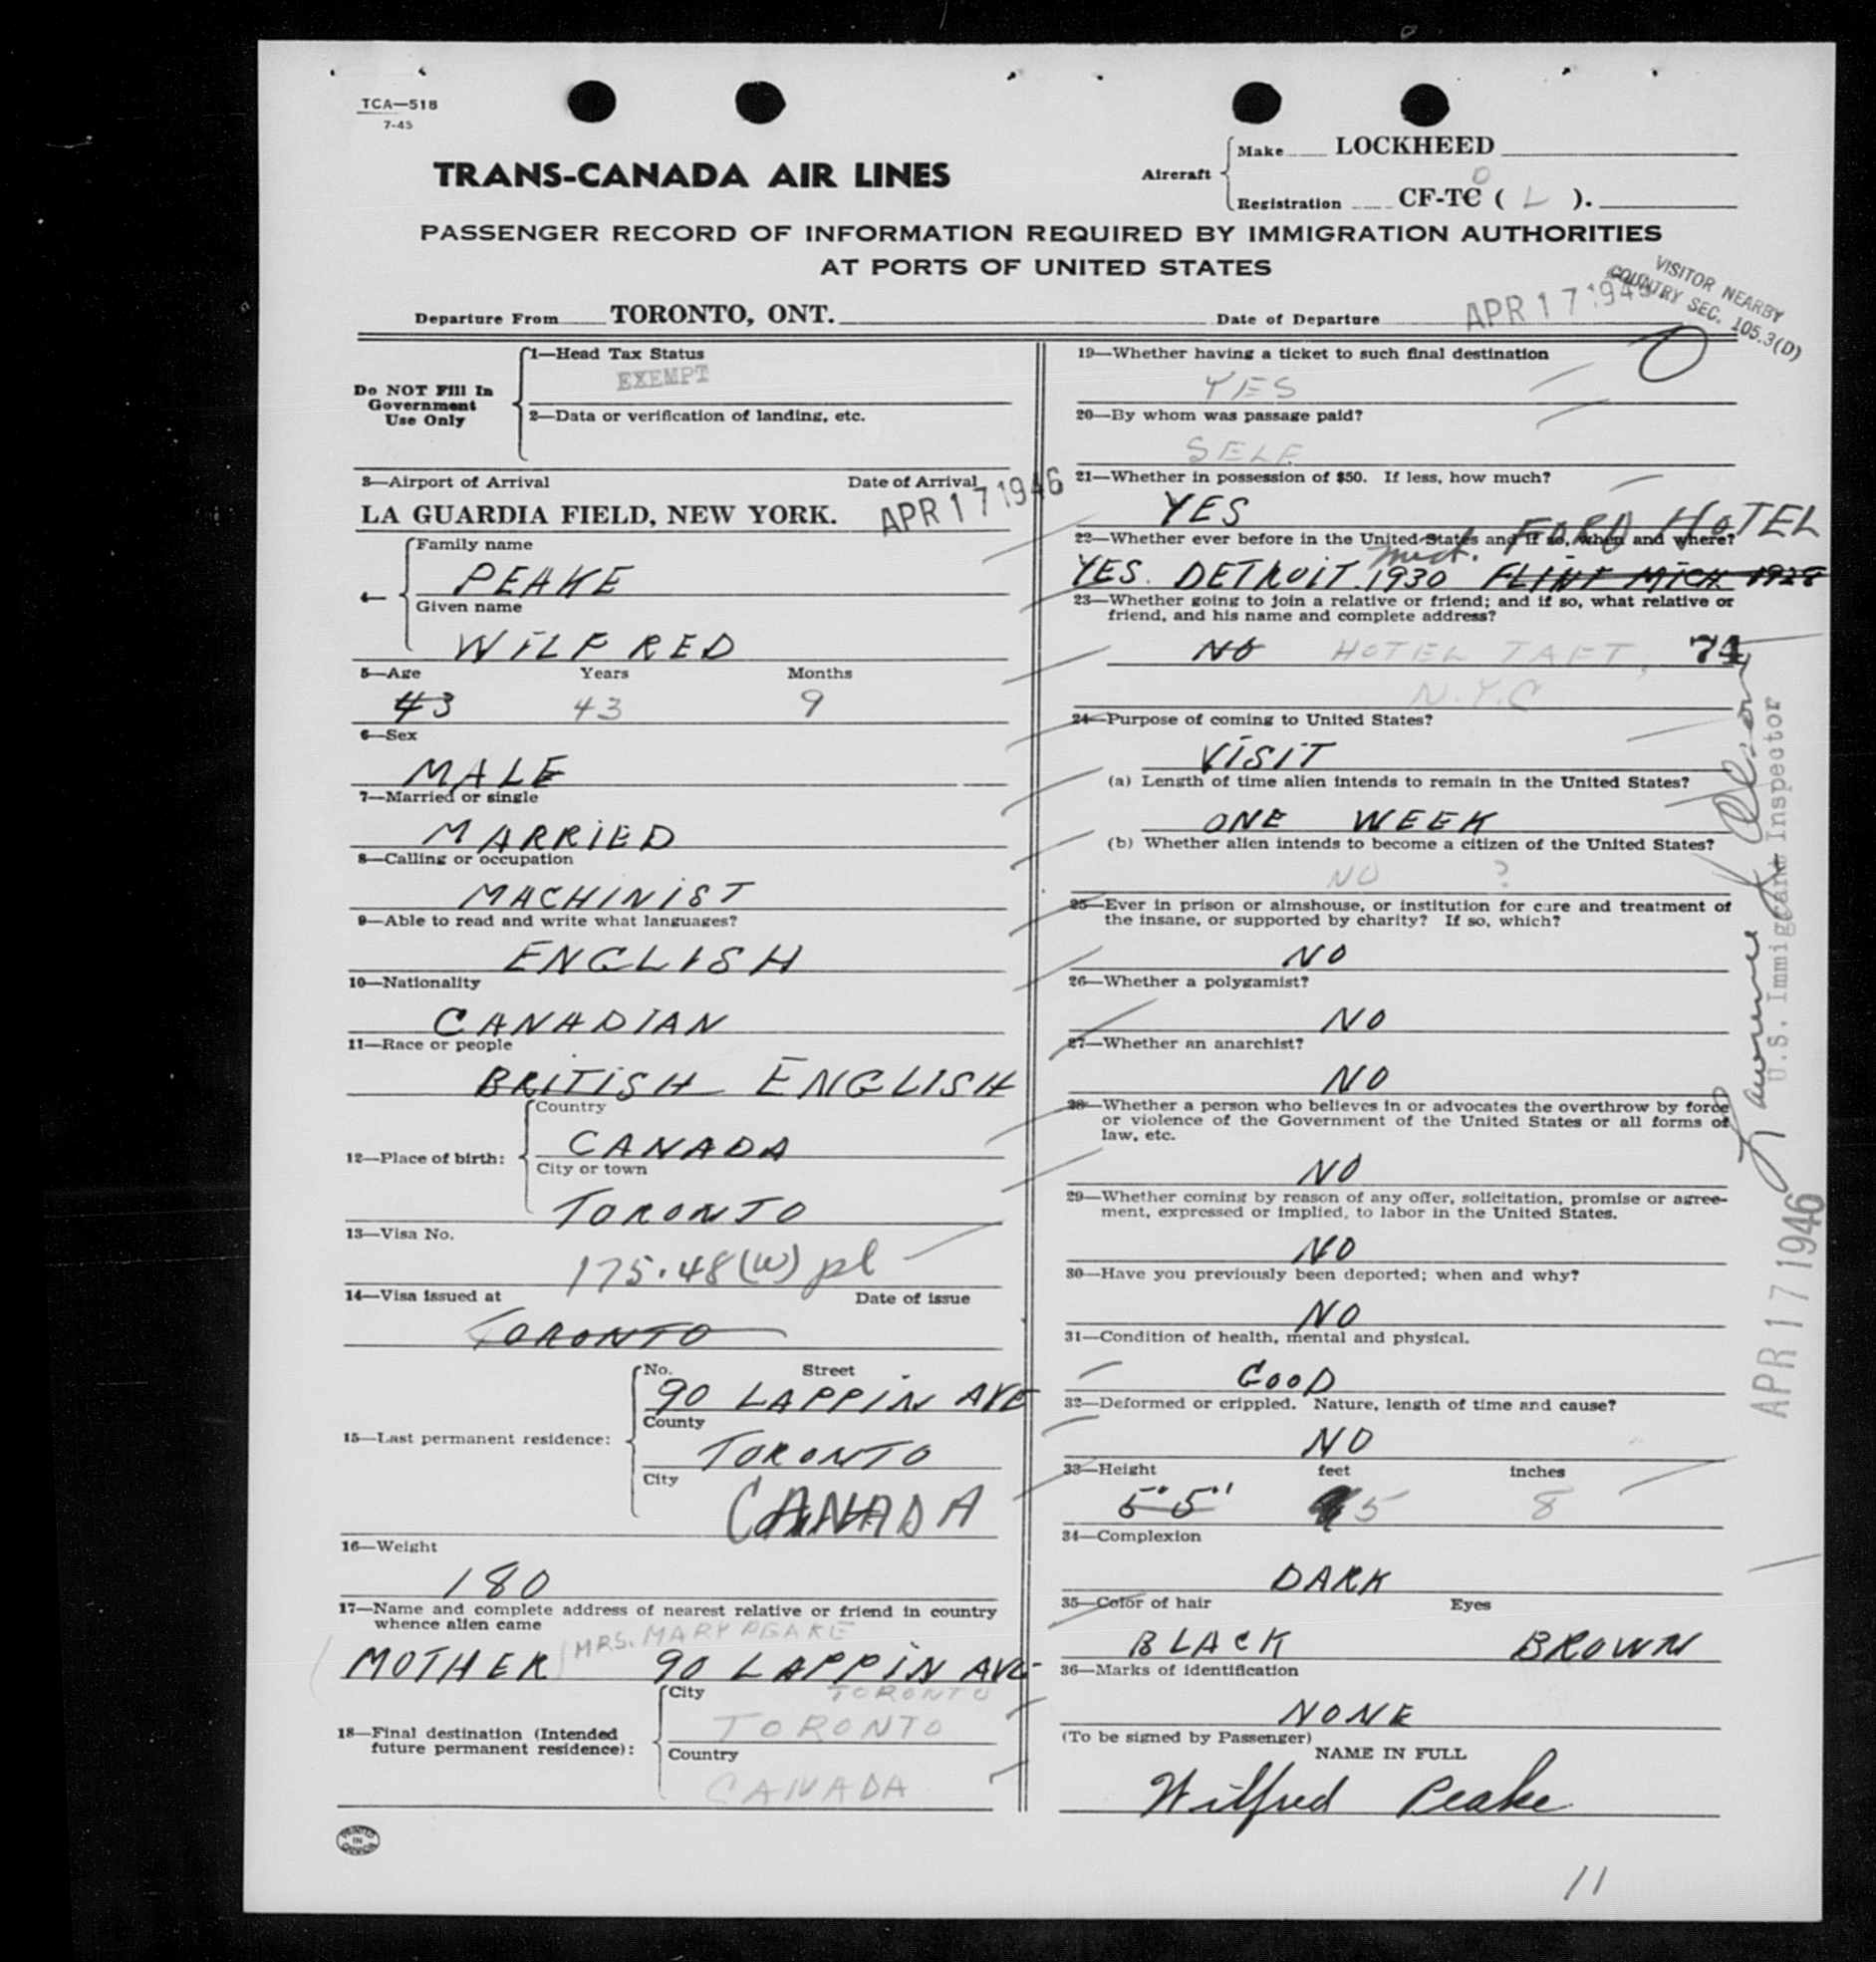 TCA—518
7-45
TRANS-CANADA AIR LINES
Aircraft
Make LOCKHEED
Registration CF-TC O ( L ).
PASSENGER RECORD OF INFORMATION REQUIRED BY IMMIGRATION AUTHORITIES
AT PORTS OF UNITED STATES
VISITOR NEARBY
COUNTRY SEC. 105.3(D)
Departure From TORONTO, ONT. Date of Departure APR 17 1946
Do NOT Fill In
Government
Use Only
1—Head Tax Status
EXEMPT
2—Data or verification of landing, etc.
3—Airport of Arrival Date of Arrival
LA GUARDIA FIELD, NEW YORK. APR 17 1946
4—
Family name
PEAKE
Given name
WILFRED
5—Age Years Months
43 43 9
6—Sex
MALE
7—Married or single
MARRIED
8—Calling or occupation
MACHINIST
9—Able to read and write what languages?
ENGLISH
10—Nationality
CANADIAN
11—Race or people
BRITISH ENGLISH
12—Place of birth:
Country
CANADA
City or town
TORONTO
13—Visa No.
175.48(W) pl
14—Visa issued at Date of issue
TORONTO
15—Last permanent residence:
No. Street
90 LAPPIN AVE
County
TORONTO
City
CANADA
16—Weight
180
17—Name and complete address of nearest relative or friend in country
whence alien came
MRS. MARY PEAKE
MOTHER 90 LAPPIN AVE
TORONTO
18—Final destination (Intended
future permanent residence):
City
TORONTO
Country
CANADA
PRINTED
IN
CANADA
19—Whether having a ticket to such final destination
YES
20—By whom was passage paid?
SELF
21—Whether in possession of $50. If less, how much?
YES
FORD HOTEL
22—Whether ever before in the United States and if so, when and where?
Mich.
YES. DETROIT 1930 FLINT MICH 1928
23—Whether going to join a relative or friend; and if so, what relative or
friend, and his name and complete address?
NO HOTEL TAFT, 74
N.Y.C
24—Purpose of coming to United States?
VISIT
(a) Length of time alien intends to remain in the United States?
ONE WEEK
(b) Whether alien intends to become a citizen of the United States?
NO ?
25—Ever in prison or almshouse, or institution for care and treatment of
the insane, or supported by charity? If so, which?
NO
26—Whether a polygamist?
NO
27—Whether an anarchist?
NO
28—Whether a person who believes in or advocates the overthrow by force
or violence of the Government of the United States or all forms of
law, etc.
NO
29—Whether coming by reason of any offer, solicitation, promise or agree-
ment, expressed or implied, to labor in the United States.
NO
30—Have you previously been deported; when and why?
NO
31—Condition of health, mental and physical.
GOOD
32—Deformed or crippled. Nature, length of time and cause?
NO
33—Height feet inches
5'5" 5 8
34—Complexion
DARK
35—Color of hair Eyes
BLACK BROWN
36—Marks of identification
NONE
(To be signed by Passenger)
NAME IN FULL
Wilfred Peake
11
U.S. Immigrant Inspector
APR 17 1946